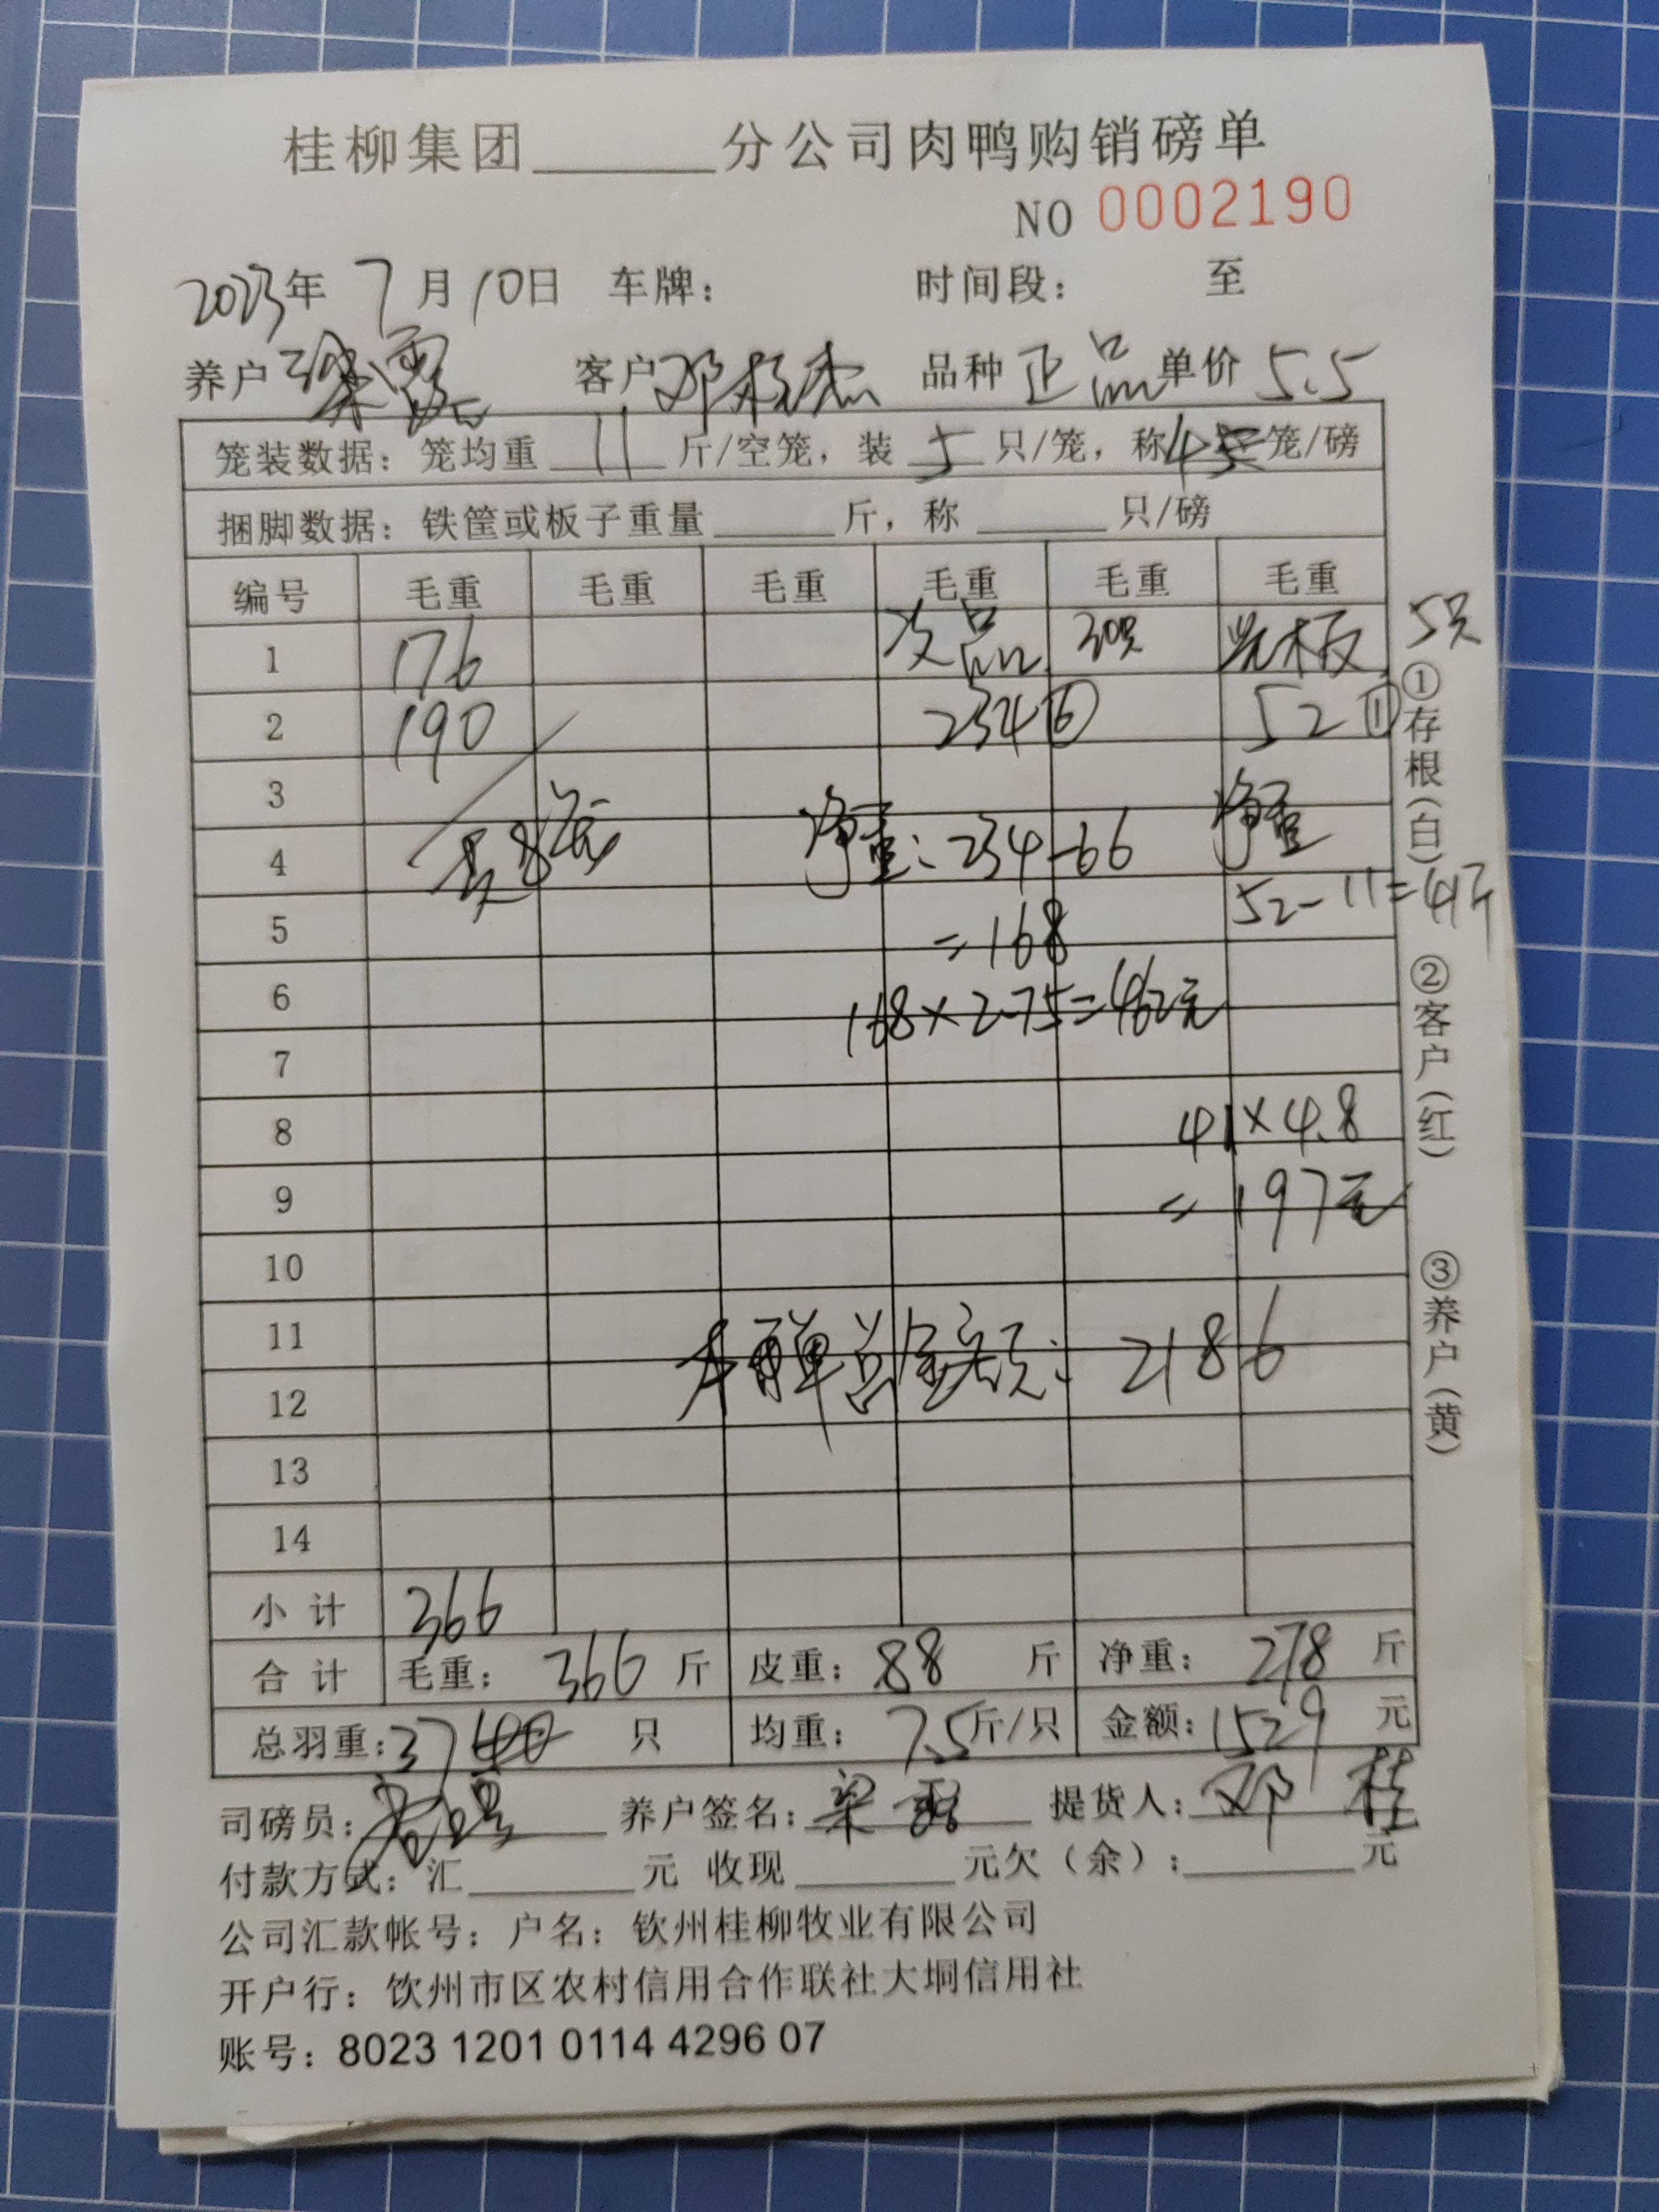 桂柳集团______分公司肉鸭购销磅单
NO 0002190
2023年 7月10日 车牌： 时间段： 至
养户 梁 客户 邓 杰 品种 正品 单价 5.5
笼装数据：笼均重 11 斤/空笼，装 5 只/笼，称 4 笼/磅
捆脚数据：铁筐或板子重量______斤，称______只/磅
编号 毛重 毛重 毛重 毛重 毛重 毛重
1 176 次品 30只 光板 5只
2 190 234⑥ 52①
3
4 共8笼 净重：234-66 净重
5 =168 52-11=41斤
6 168×2.75=462元
7
8 41×4.8
9 =197元
10
11 本单总金额：2186
12
13
14
小计 366
合计 毛重： 366 斤 皮重： 88 斤 净重： 278 斤
总羽重：37 40 只 均重： 7.5斤/只 金额：1529 元
司磅员： 养户签名：梁 提货人：邓 桂
付款方式：汇______元 收现______元欠（余）：______元
公司汇款帐号：户名：钦州桂柳牧业有限公司
开户行：饮州市区农村信用合作联社大垌信用社
账号：8023 1201 0114 4296 07
①存根（白） ②客户（红） ③养户（黄）